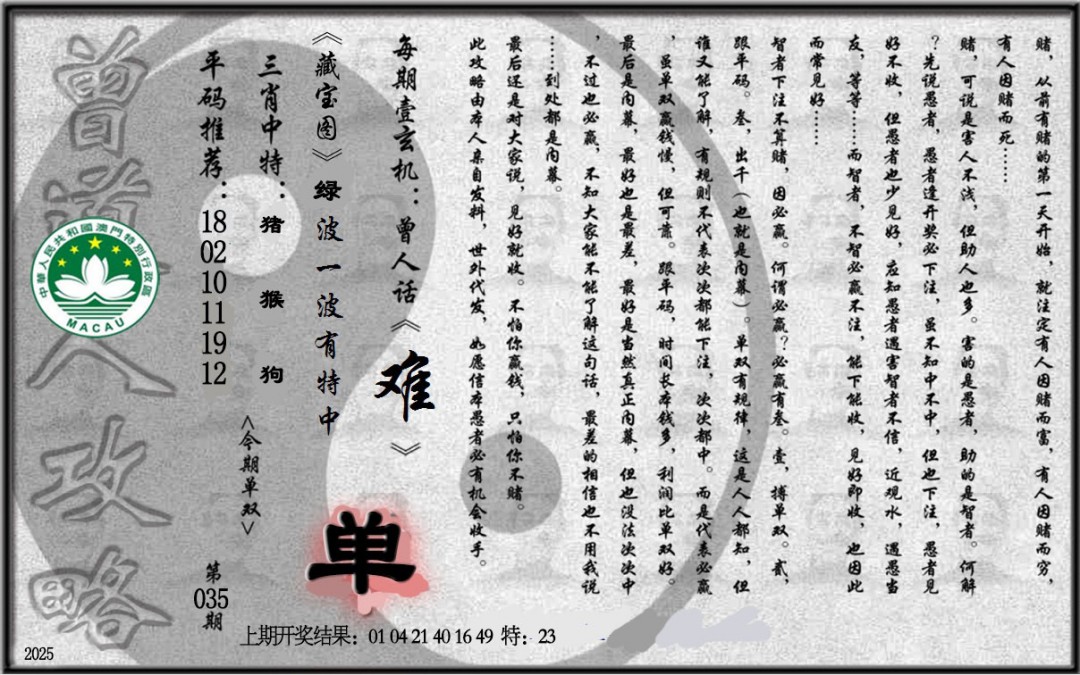 赌，从前有赌的第一天开始，就注定有人因赌而富，有人因赌而穷，
有人因赌而死……
赌，可说是害人不浅，但助人也多。害的是愚者，助的是智者。何解
？先说愚者，愚者逢开奖必下注，虽不知中不中，但也下注，愚者见
好不收，但愚者也少见好，应知愚者遇害智者不信，近观水，遇愚当
友，等等……而智者，不智必赢不注，能下能收，见好即收，也因此
而常见好……
智者下注不算赌，因必赢。何谓必赢？必赢有叁。壹，搏单双。贰，
跟平码。叁，出千（也就是内幕）。单双有规律，这是人人都知，但
谁又能了解，有规则不代表次次都能下注，次次都中。而是代表必赢
，虽单双赢钱慢，但可靠。跟平码，时间长本钱多，利润比单双好。
最后是内幕，最好也是最差，最好是当然真正内幕，但也没法次次中
，不过也必赢，不知大家能不能了解这句话，最差的相信也不用我说
……到处都是内幕。
最后还是对大家说，见好就收。不怕你赢钱，只怕你不赌。
此攻略由本人亲自发料，世外代发，如愿信本愚者必有机会收手。
每期壹玄机：曾人话《难》
《藏宝图》绿波一波有特中
三肖中特：猪 猴 狗
平码推荐：18 02 10 11 19 12
<今期单双>
单
第035期
曾道人攻略
中華人民共和國澳門特別行政區
MACAU
上期开奖结果：01 04 21 40 16 49 特：23
2025